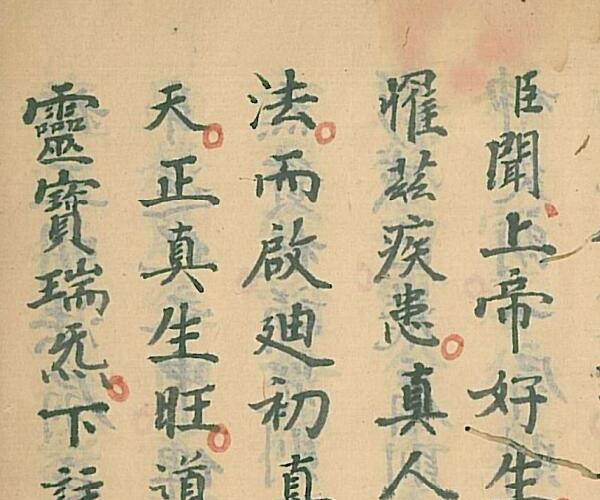 臣聞上帝好生
罹茲疾患真人
法而啟廸初真
天正真生旺道
靈寶瑞炁下註